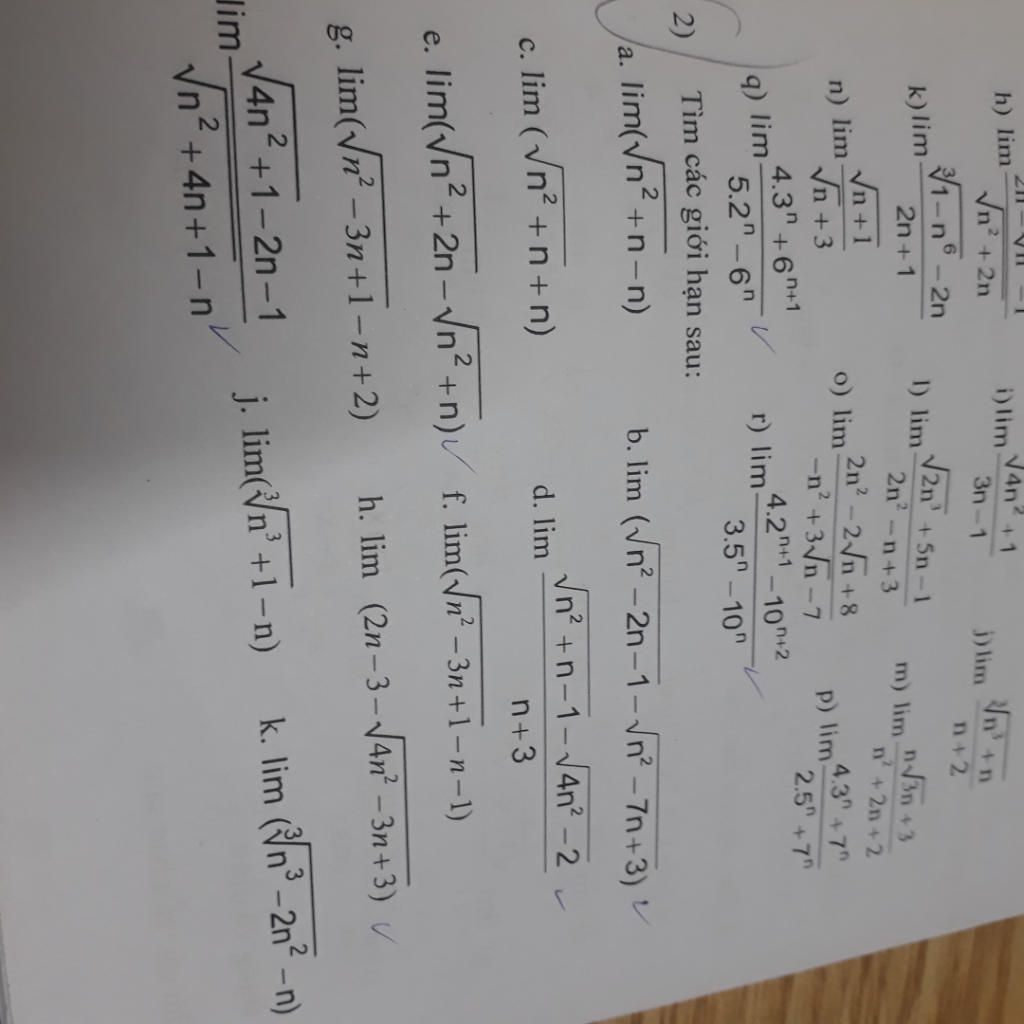 h) lim (2n - √n - 1)/√(n² + 2n) i) lim √(4n² + 1)/(3n - 1) j) lim ∛(n³ + n)/(n + 2)
k) lim (∛(1 - n⁶) - 2n)/(2n + 1) l) lim (√(2n³) + 5n - 1)/(2n² - n + 3) m) lim (n√(3n) + 3)/(n² + 2n + 2)
n) lim √(n + 1)/(√n + 3) o) lim (2n² - 2√n + 8)/(-n² + 3√n - 7) p) lim (4.3ⁿ + 7ⁿ)/(2.5ⁿ + 7ⁿ)
q) lim (4.3ⁿ + 6ⁿ⁺¹)/(5.2ⁿ - 6ⁿ) r) lim (4.2ⁿ⁺¹ - 10ⁿ⁺²)/(3.5ⁿ - 10ⁿ)
2) Tìm các giới hạn sau:
a. lim(√(n² + n) - n) b. lim (√(n² - 2n - 1) - √(n² - 7n + 3))
c. lim (√(n² + n) + n) d. lim (√(n² + n - 1) - √(4n² - 2))/(n + 3)
e. lim(√(n² + 2n) - √(n² + n)) f. lim(√(n² - 3n + 1) - n - 1)
g. lim(√(n² - 3n + 1) - n + 2) h. lim (2n - 3 - √(4n² - 3n + 3))
lim (√(4n² + 1) - 2n - 1)/(√(n² + 4n + 1) - n) j. lim(∛(n³ + 1) - n) k. lim (∛(n³ - 2n²) - n)